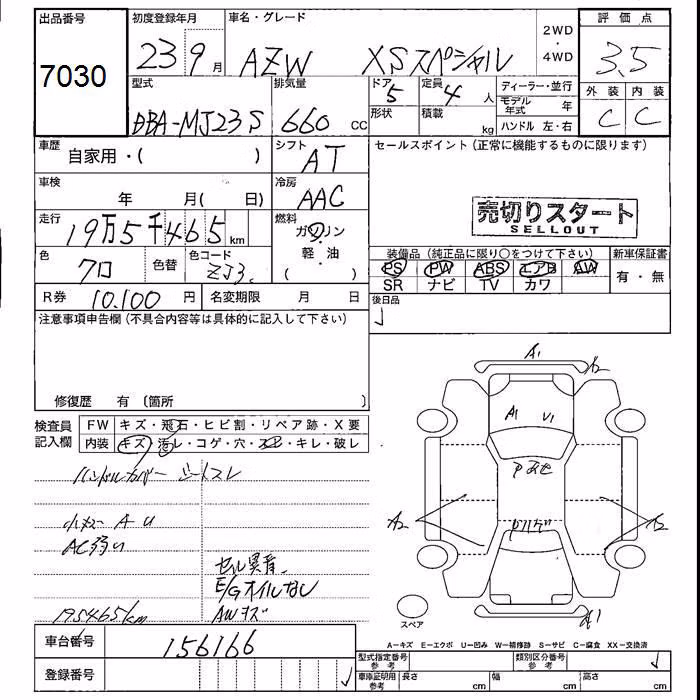 出品番号
7030
初度登録年月
23 9月
車名・グレード
AZW XSスペシャル
2WD
・
4WD
評価点
3.5
外装 内装
C C
型式
DBA-MJ23S
排気量
660 CC
ドア
5
定員
4 人
形状
積載
kg
ディーラー・並行
モデル年式 年
ハンドル 左・右
車歴
自家用・( )
シフト
AT
セールスポイント(正常に機能するものに限ります)
車検
年 月( 日)
冷房
AAC
売切りスタート
SELLOUT
走行
19万5千465km
燃料
ガソリン
・
軽・油
( )
色
クロ
色替
色コード
ZJ3
装備品(純正品に限り○をつけて下さい)
PS PW ABS エアB AW
SR ナビ TV カワ
新車保証書
有・無
R券 10,100 円
名変期限 月 日
後日品
注意事項申告欄(不具合内容等は具体的に記入して下さい)
修復歴 有(箇所 )
検査員
記入欄
FW キズ・飛石・ヒビ割・リペア跡・X要
内装 キズ・汚レ・コゲ・穴・スレ・キレ・破レ
ハンドルカバー シートスレ
小キズ A U
AC弱い
セル異音
E/Gオイルなし
195465km
AWキズ
A1
A1 U1
A2
A1
スペア
A-キズ E-エクボ U-凹み W-補修跡 S-サビ C-腐食 XX-交換済
車台番号 156166
登録番号
型式指定番号
参考
類別区分番号
参考
車庫証明用
参考
長さ cm 幅 cm 高さ cm